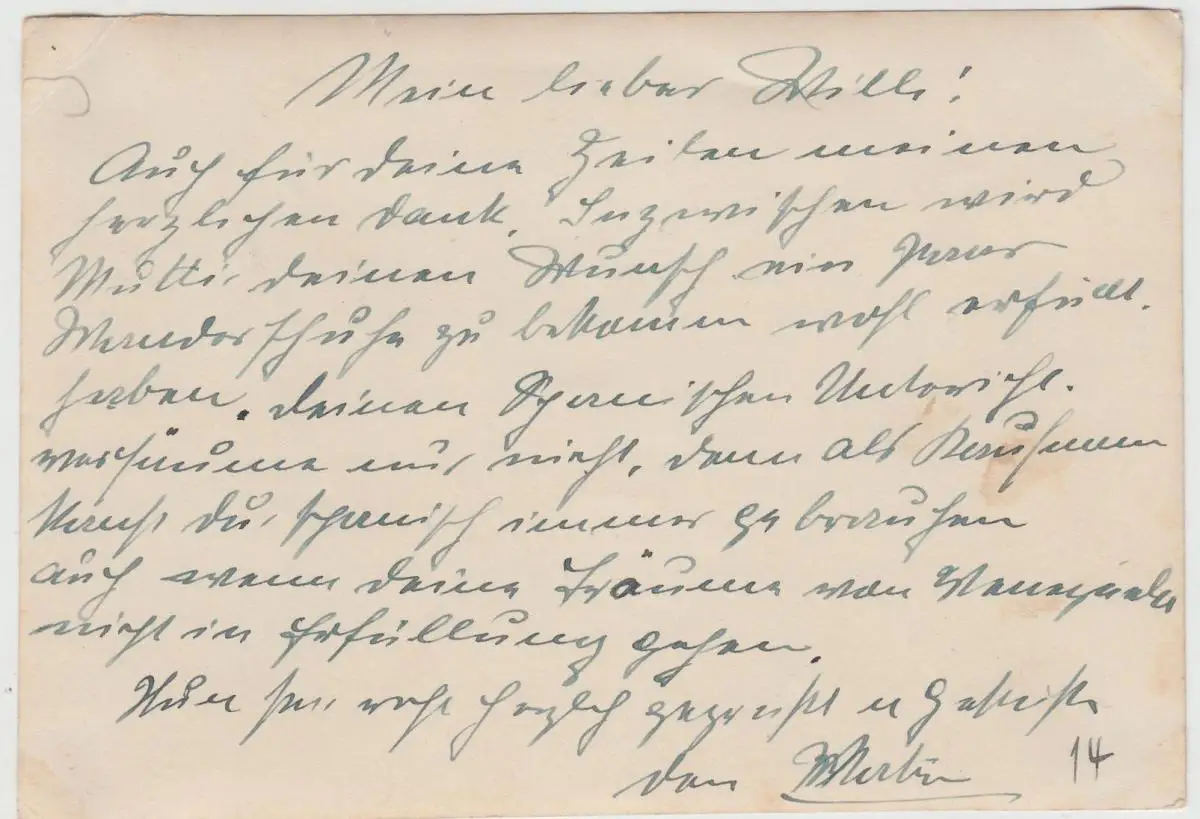 Mein lieber Willi!
Auch für deine Zeilen meinen
herzlichen Dank. Inzwischen wird
Mutti deinen Wunsch ein Paar
Wanderschuhe zu bekommen wohl erfüllt
haben. Deinen Spanischen Unterricht
versäume nur nicht, denn als Kaufmann
kanst du spanisch immer gebrauchen
auch wenn deine Träume von Venezuela
nicht in Erfüllung gehen.
Nun sei recht herzlich gegrüßt u geküßt
von
14